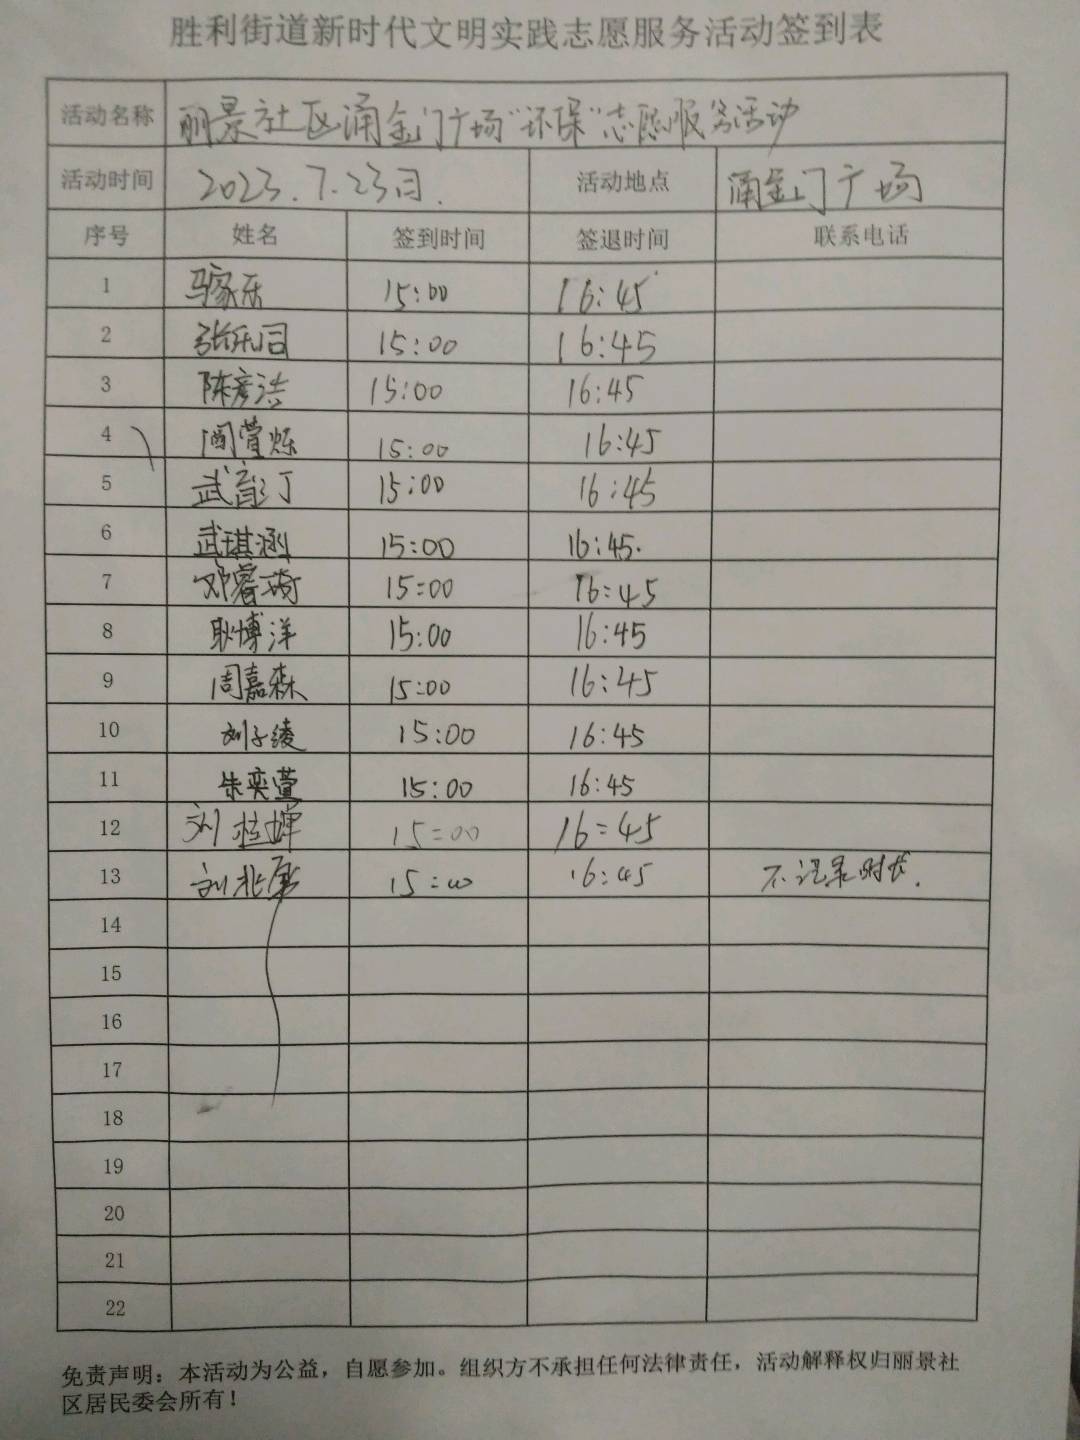 胜利街道新时代文明实践志愿服务活动签到表
活动名称 丽景社区涌金门广场“环保”志愿服务活动
活动时间 2023.7.23日. 活动地点 涌金门广场
序号 姓名 签到时间 签退时间 联系电话
1 马家乐 15:00 16:45
2 张乐同 15:00 16:45
3 陈彦洁 15:00 16:45
4 阎萱烁 15:00 16:45
5 武 15:00 16:45
6 武琪涵 15:00 16:45.
7 邓睿琦 15:00 16:45
8 耿博洋 15:00 16:45
9 周嘉森 15:00 16:45
10 刘子绫 15:00 16:45
11 朱奕萱 15:00 16:45
12 刘 15:00 16:45
13 刘 15:00 16:45 不记录时长.
14
15
16
17
18
19
20
21
22
免责声明：本活动为公益，自愿参加。组织方不承担任何法律责任，活动解释权归丽景社
区居民委会所有！